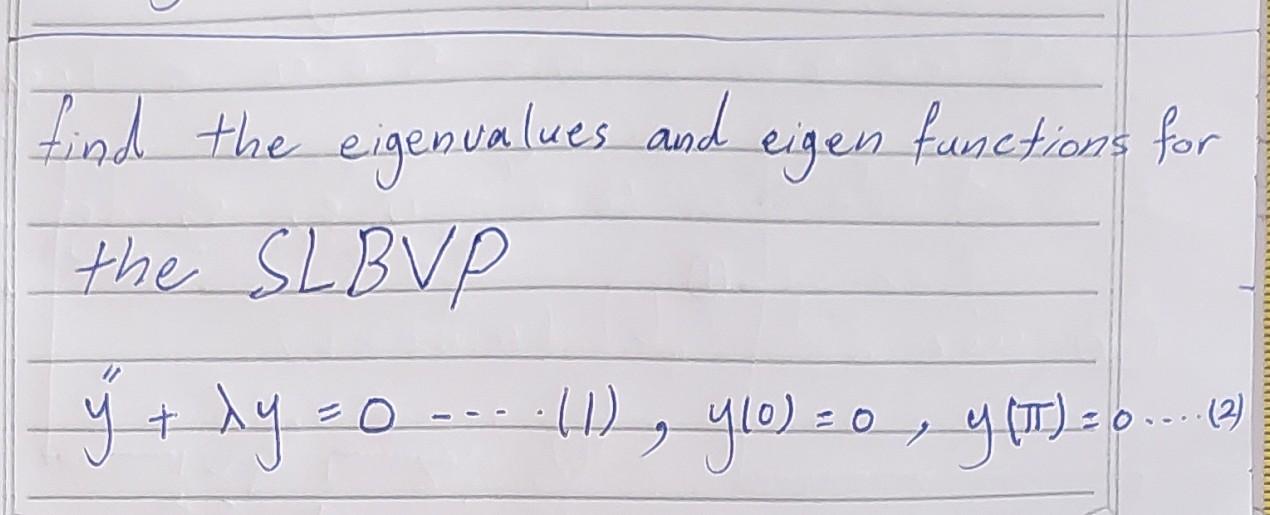 find the eigenvalues and eigen functions for
the SLBVP
y'' + λy = 0 ----.(1), y(0) = 0 , y(π) = 0 .....(2)